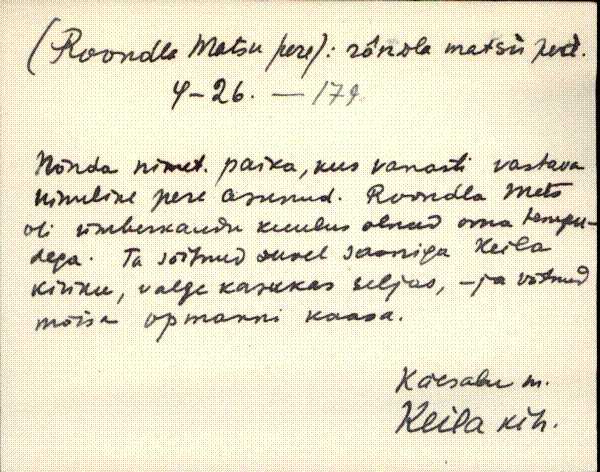 (Roondla Matsu pere): rõnola matsu pere.
4-26. — 179.
Nõnda nimet. paika, kus vanasti vastava
nimuline pere asunud. Roondla Mats
oli ümberkaudu kuulus olnud oma tempu-
dega. Ta sõitnud suvel saaniga Keila
kiriku, valge kasukas seljas, - ja võtnud
mõisa opmanni kaasa.
Käesalu m.
Keila kih.